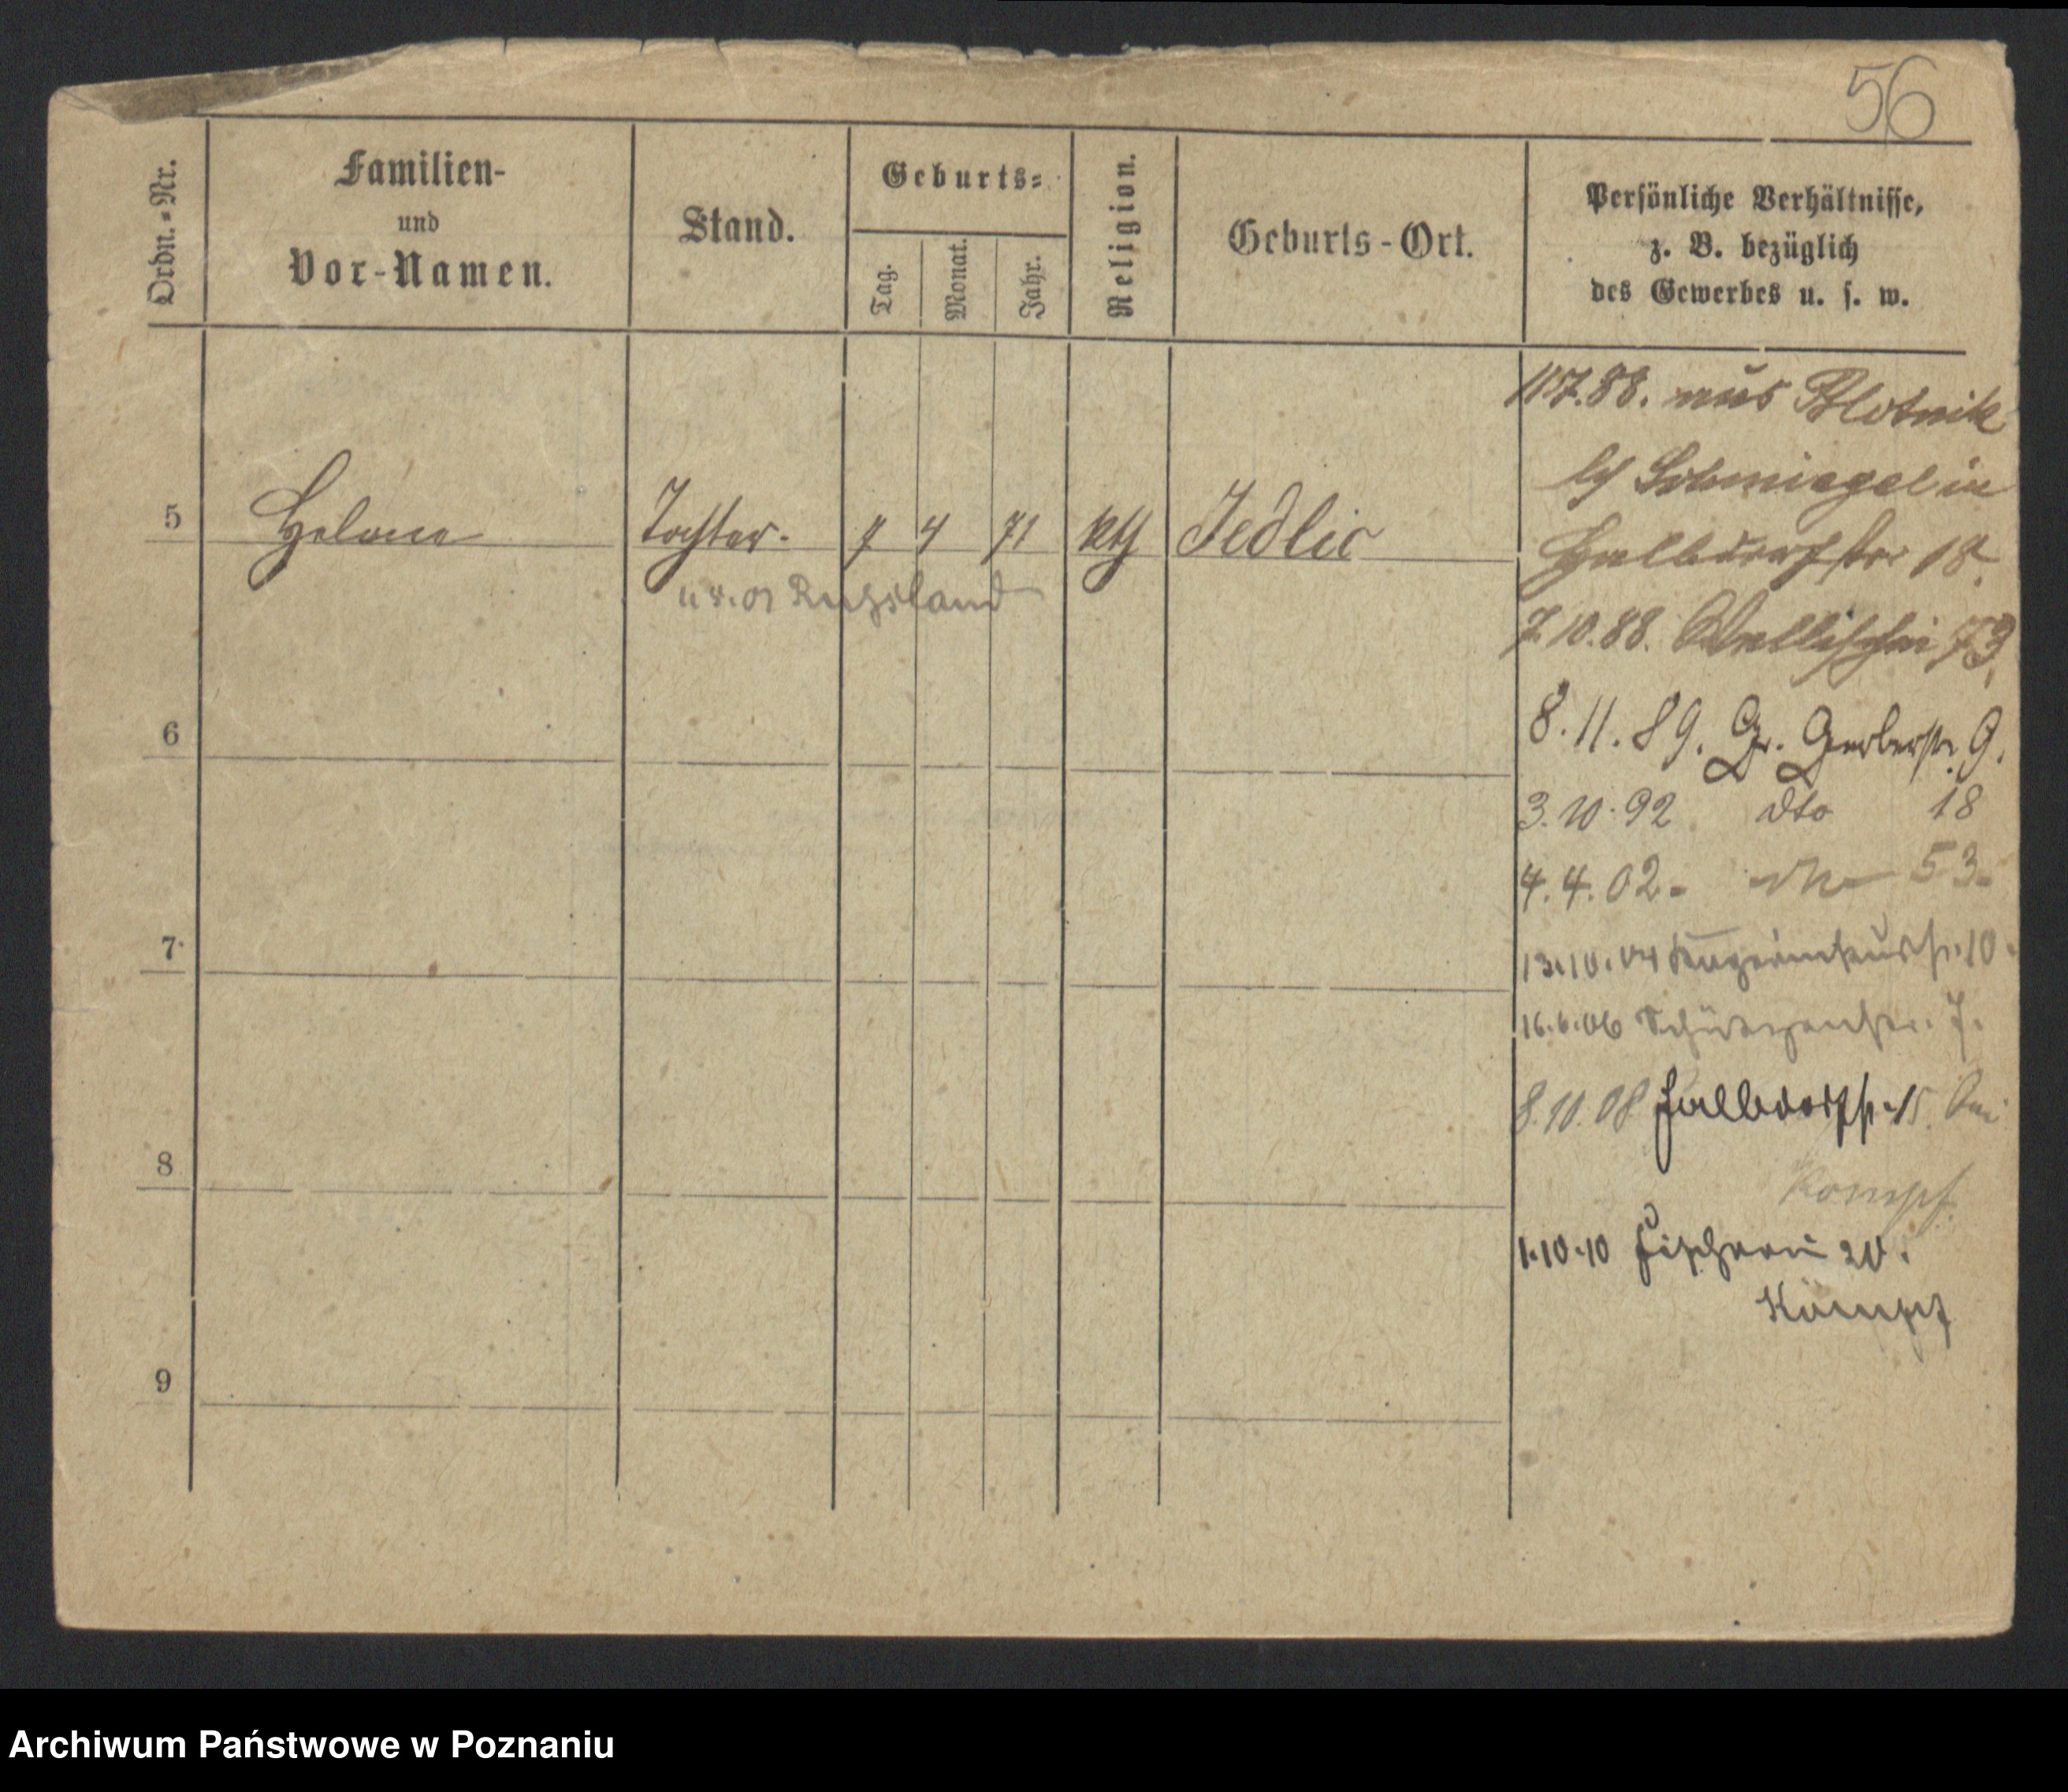 56
Ordn.-Nr.
Familien-
und
Vor-Namen.
Stand.
Geburts-
Tag.
Monat.
Jahr.
Religion.
Geburts-Ort.
Persönliche Verhältnisse,
z. B. bezüglich
des Gewerbes u. s. w.
5 Helene Tochter. 7 4 71 kth Jedlic
Russland
7.88. aus Plotnik
Schmiegel in
Halbdorfstr 18.
7.10.88. Wallischei 73,
8.11.89. Gr. Gerberstr. 9.
3.10.92 dto 18
4.4.02. dto 53.
13.10.04 10.
16.6.06 Schützenstr. 7.
8.10.08 Halbdorfstr. 15.
Kompf.
1.10.10 Fischerei 20.
Kämpf
6
7
8
9
Archiwum Państwowe w Poznaniu